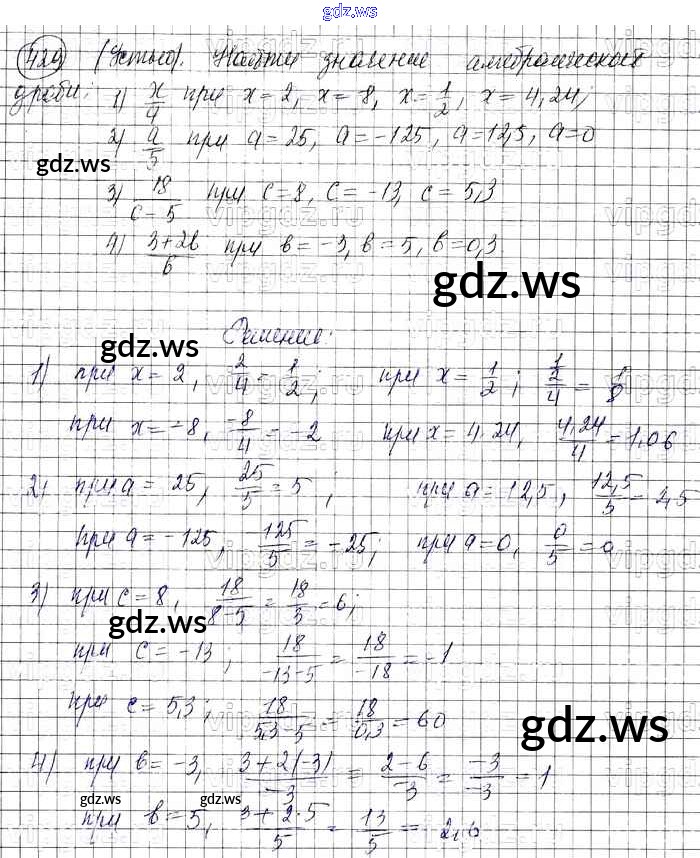 gdz.ws
429 (Устно). Найти значение алгебраической
дроби: 1) x/4 при x = 2, x = 8, x = 1/2, x = 4,24;
2) a/5 при a = 25, a = -125, a = 12,5, a = 0
gdz.ws
3) 18/(c - 5) при c = 8, c = -13, c = 5,3
4) (3 + 2b)/b при b = -3, b = 5, b = 0,3
gdz.ws
Решение:
gdz.ws
1) при x = 2, 2/4 = 1/2; при x = 1/2; (1/2)/4 = 1/8
при x = -8, -8/4 = -2 при x = 4.24, 4,24/4 = 1,06
2) при a = 25, 25/5 = 5; при a = 12,5, 12,5/5 = 2,5
при a = -125, -125/5 = -25; при a = 0, 0/5 = 0
3) при c = 8, 18/(8 - 5) = 18/3 = 6;
gdz.ws
при c = -13; 18/(-13 - 5) = 18/-18 = -1
при c = 5,3; 18/(5,3 - 5) = 18/0,3 = 60
gdz.ws
4) при b = -3, (3 + 2(-3))/-3 = (2 - 6)/-3 = -3/-3 = 1
gdz.ws gdz.ws
при b = 5, (3 + 2·5)/5 = 13/5 = 2,6
gdz.ws